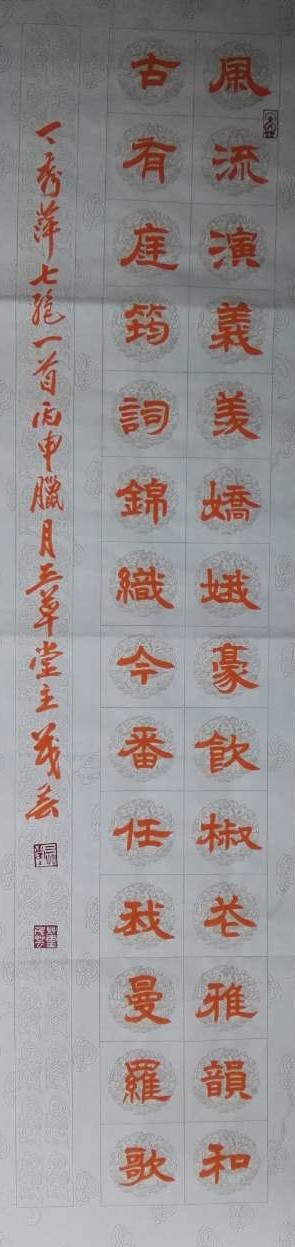 風流演義羨嬌娥豪飲椒花雅韻和
古有庭筠詞錦織今番任我曼羅歌
丁秀萍七絕一首丙申臘月三草堂主茂芸